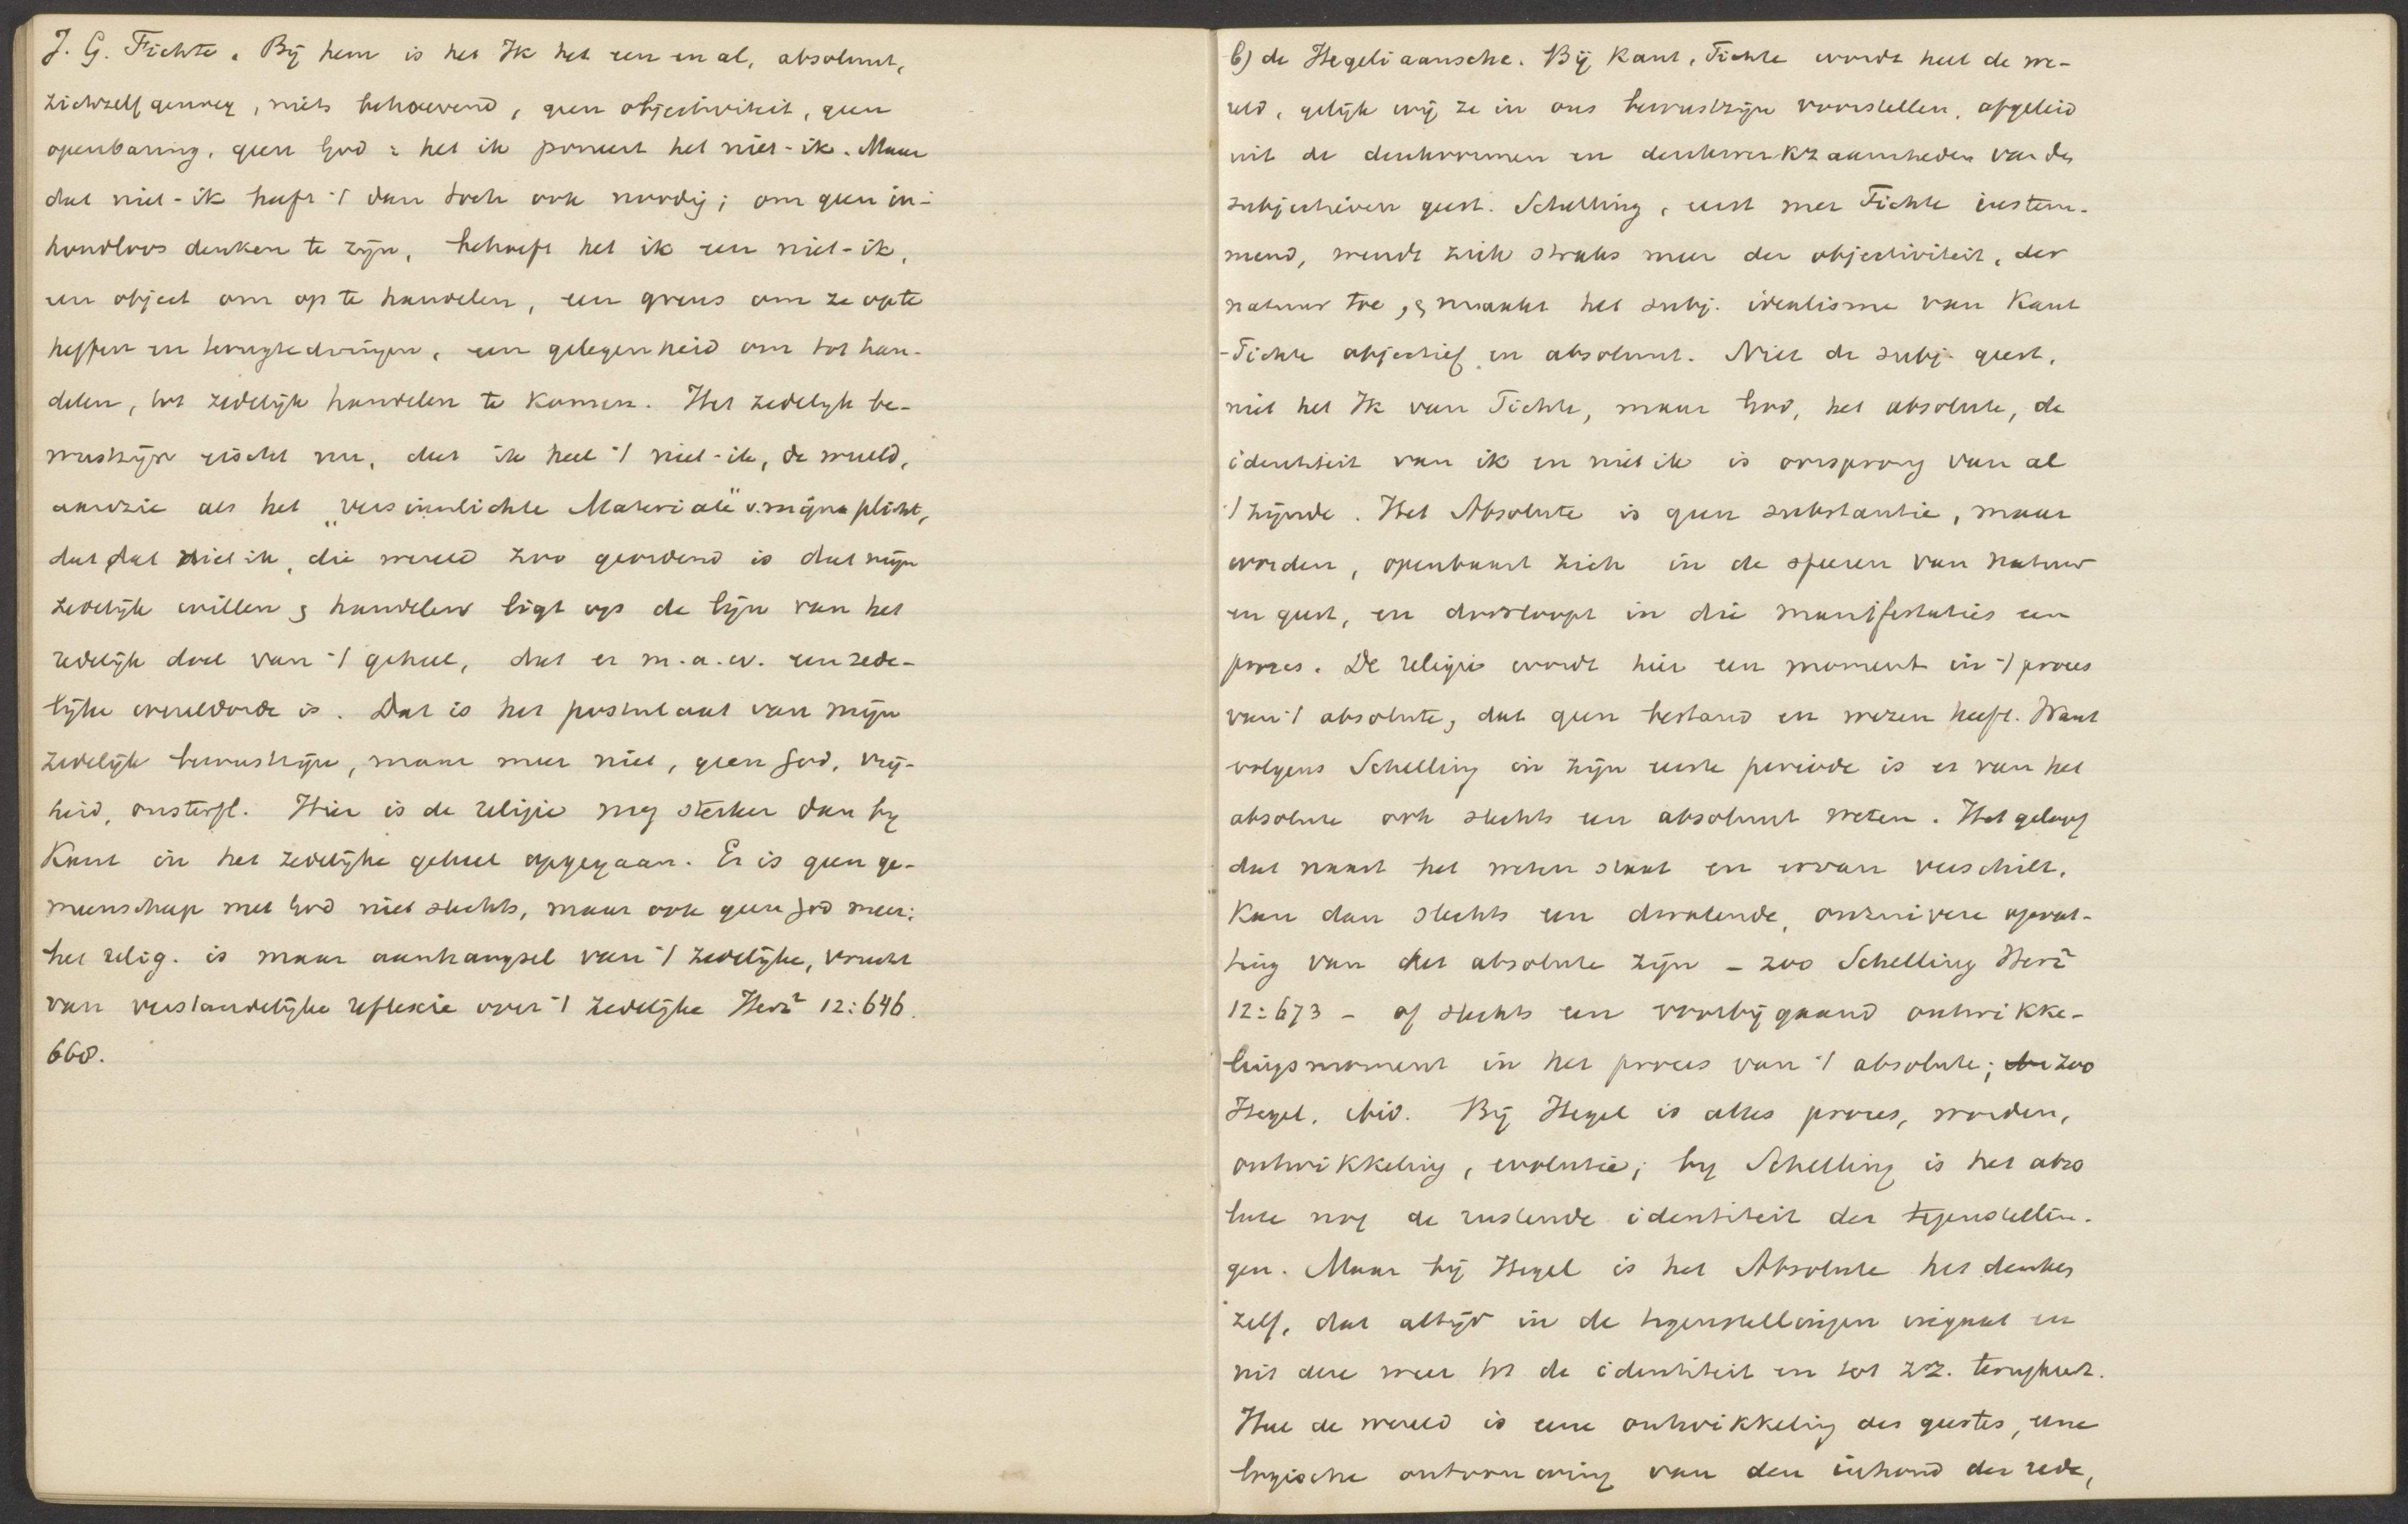 J. G. Fichte. Bij hem is het Ik het een en al, absoluut,
zichzelf genoeg, niets behoevend, geen objectiviteit, geen
openbaring, geen God: het ik poneert het niet-ik. Maar
dat niet-ik heeft 't dan toch ook noodig; om geen in-
houdloos denken te zijn, behoeft het ik een niet-ik,
een object om op te handelen, een grens om ze op te
heffen en terugtedringen, een gelegenheid om tot han-
delen, tot zedelijk handelen te komen. Het zedelijk be-
wustzijn eischt nu, dat ik heel 't niet-ik, de wereld,
aanzie als het „versinnlichte Materiale" v. mijne plicht,
dat dat niet ik, die wereld zoo geordend is dat mijn
zedelijk willen & handelen ligt op de lijn van het
redelijk doel van 't geheel, dat er m.a.w. een zede-
lijke wereldorde is. Dat is het postulaat van mijn
zedelijk bewustzijn, maar meer niet, geen God, vrij-
heid, onsterfl. Hier is de religie nog sterker dan bij
Kant in het zedelijke geheel opgegaan. Er is geen ge-
meenschap met God niet slechts, maar ook geen God meer;
het relig. is maar aanhangsel van 't zedelijke, vrucht
van verstandelijke reflexie over 't zedelijke Herz² 12:646.
668.
b) de Hegeliaansche. Bij Kant, Fichte wordt heel de we-
reld, gelijk wij ze in ons bewustzijn voorstellen, afgeleid
uit de denkvormen en denkwerkzaamheden van den
subjectieven geest. Schelling, eerst met Fichte instem-
mend, wendt zich straks meer der objectiviteit, der
natuur toe, & maakt het subj. idealisme van Kant
-Fichte objectief en absoluut. Niet de subj. geest,
niet het Ik van Fichte, maar God, het absolute, de
identiteit van ik en niet ik is oorsprong van al
't zijnde. Het Absolute is geen substantie, maar
worden, openbaart zich in de sferen van natuur
en geest, en doorloopt in die manifestaties een
proces. De religie wordt hier een moment in 't proces
van 't absolute, dat geen bestand en wezen heeft. Want
volgens Schelling in zijn eerste periode is er van het
absolute ook slechts een absoluut weten. Het geloof
dat naast het weten staat en ervan verschilt,
kan dan slechts een dwalende, onzuivere opvat-
ting van het absolute zijn – zoo Schelling Herz²
12:673 – of slechts een voorbijgaand ontwikke-
lingsmoment in het proces van 't absolute; zoo
Hegel, ibid. Bij Hegel is alles proces, worden,
ontwikkeling, evolutie; bij Schelling is het abso
lute nog de rustende identiteit der tegenstellin-
gen. Maar bij Hegel is het Absolute het denken
zelf, dat altijd in de tegenstellingen ingaat en
uit deze weer tot de identiteit en tot z.z. terugkeert.
Heel de wereld is eene ontwikkeling des geestes, eene
logische ontvouwing van den inhoud der rede,